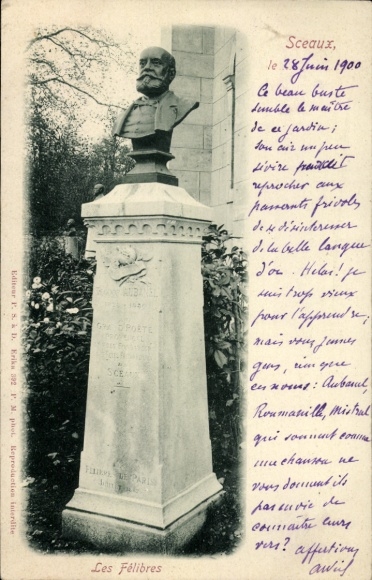 Sceaux,
le 28 Juin 1900
Ce beau buste
semble le maître
de ce jardin;
son air un peu
sévère
reprocher aux
passants frivoles
de se désintéresser
de la belle langue
d'oc. Hélas! je
suis trop vieux
pour l'apprendre,
mais vous jeunes
gens, rien que
ces noms: Aubanel,
Roumanille, Mistral
qui sonnent comme
une chanson ne
vous donnent ils
pas envie de
connaître leurs
vers?
affections
SCEAUX
Les Félibres
Editeur F. S. à D., Erika 592 F. M. phot. Reproduction interdite